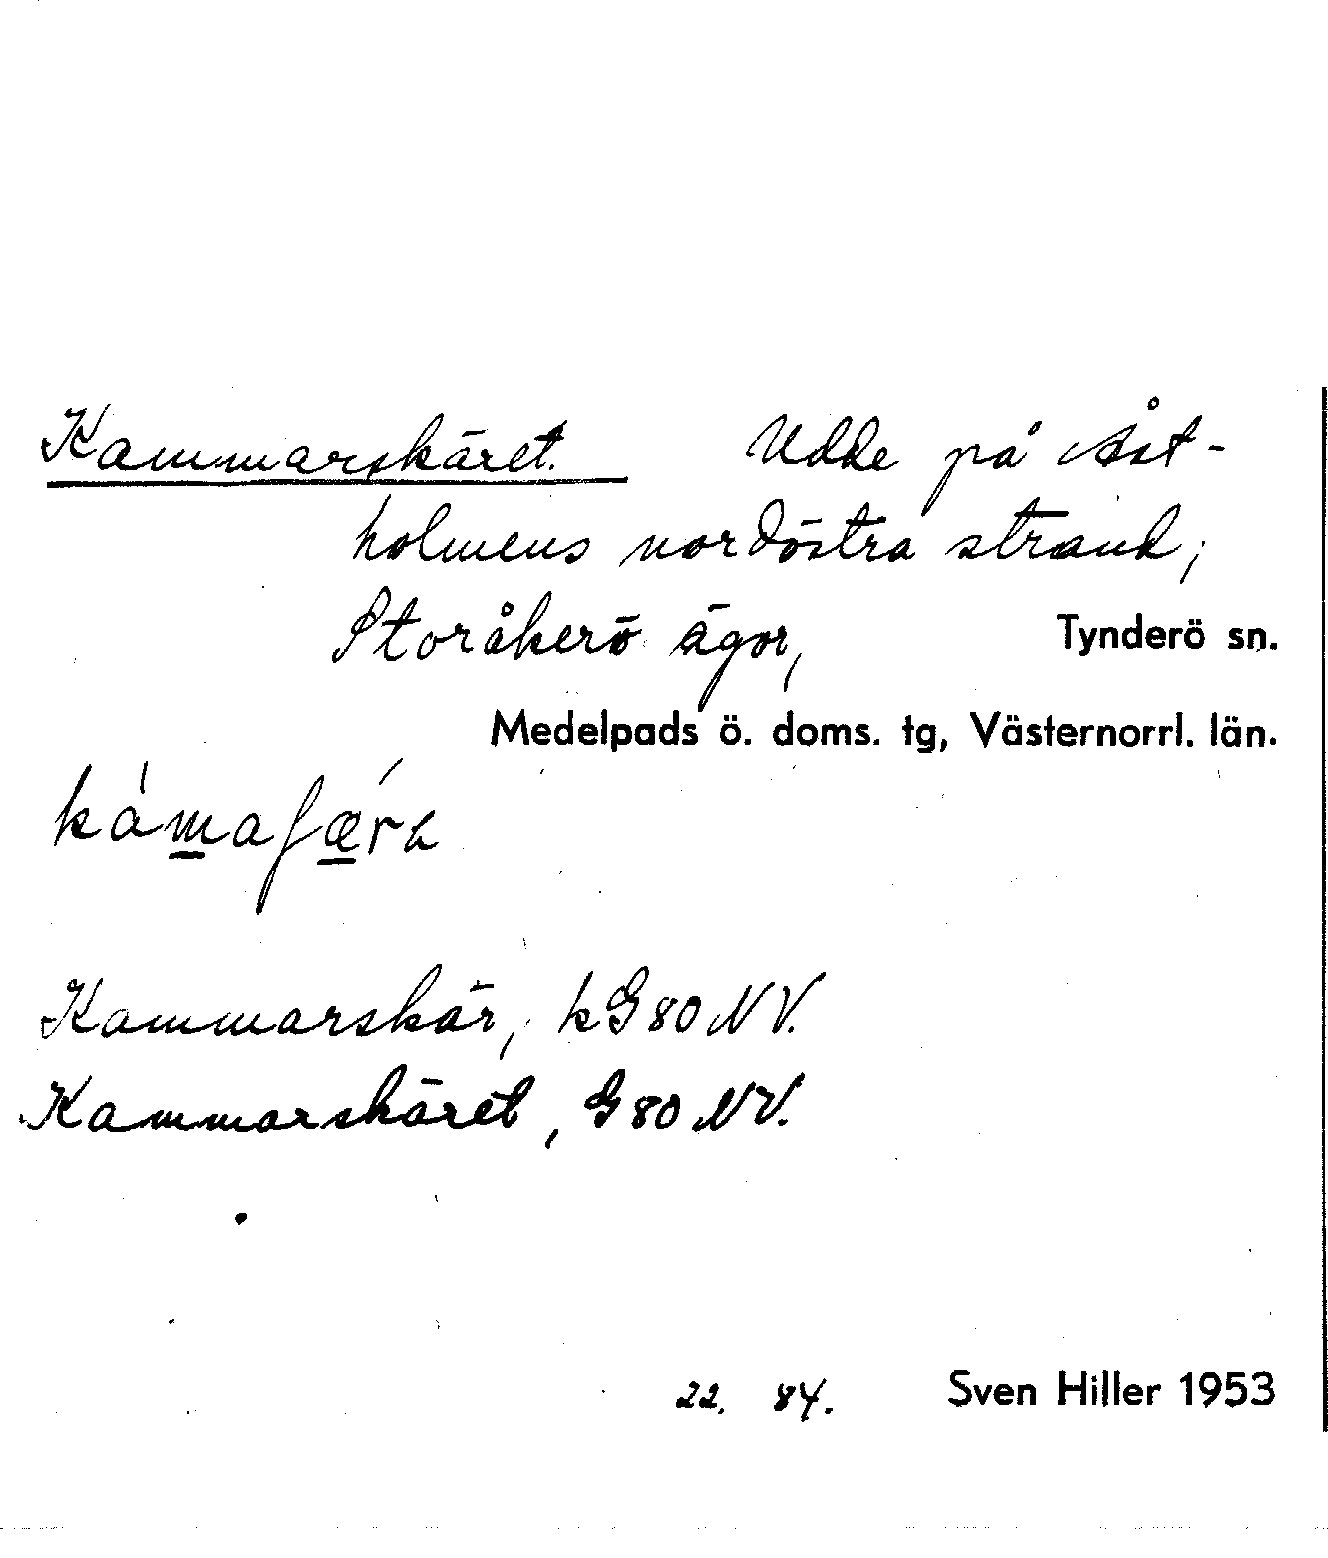 Kammarskäret. Udde på Åst-
holmens nordöstra strand,
Storåkerö ägor, Tynderö sn.
Medelpads ö. doms. tg, Västernorrl. län.
Kammarskär, kG80NV.
Kammarskäret, G80NV.
22. 84. Sven Hiller 1953